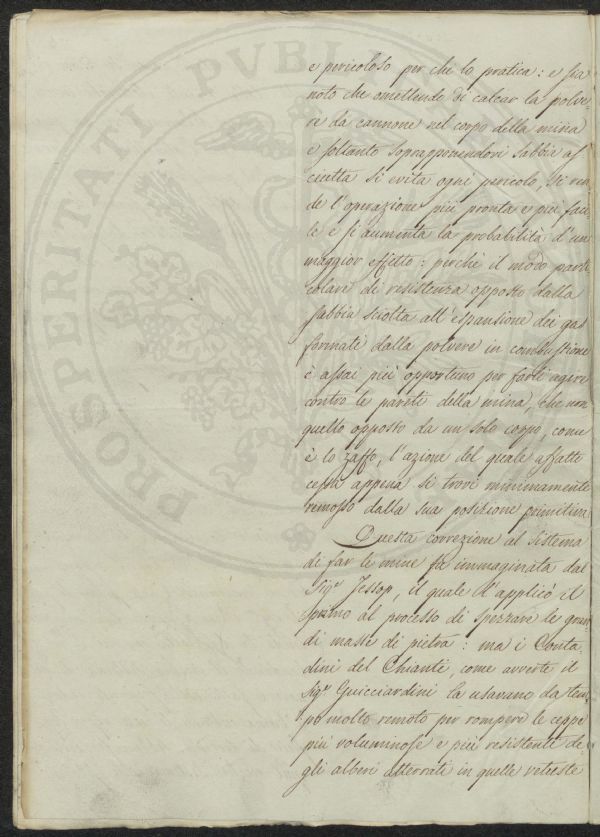 PROSPERITATI PVBLI
e pericoloso per che lo pratica: e sia
noto che omettendo di calcar la polve-
re da cannone nel corpo della mina
e soltanto soprapponendovi sabbia as
ciutta si evita ogni pericolo, si ren
de l'operazione più pronta e più faci
le e si aumenta la probabilità d'un
maggior effetto: perchè il modo parti
colare di resistenza opposto dalla
sabbia sciolta all'espansione dei gas
formati dalla polvere in combustione
è assai più opportuno per farli agire
contro le pareti della mina, che non
quello opposto da un solo corpo, come
è lo zaffo, l'azione del quale affatto
cessa appena si trovi minimamente
remosso dalla sua posizione primitiva.
Questa correzione al sistema
di far le mine fu immaginata dal
Sigr. Jessop, il quale l'applicò il
primo al processo di spezzare le gran
di masse di pietra: ma i Conta
dini del Chianti, come avverte il
Sigr. Guicciardini la usavano da tem
po molto remoto per rompere le ceppe
più voluminose e più resistenti de
gli alberi atterrati in quelle vetuste